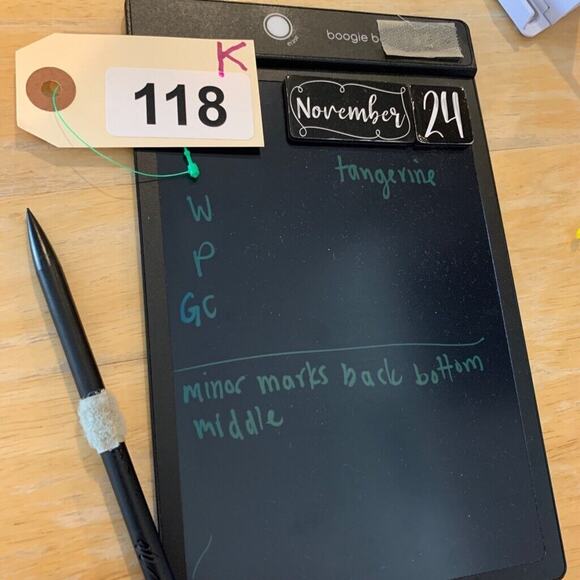 boogie b
K
118
November 24
tangerine
W
P
GC
minor marks back bottom
middle